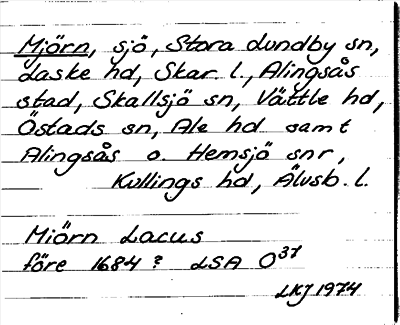 Mjörn, sjö, Stora Lundby sn,
Laske hd, Skar. l., Alingsås
stad, Skallsjö sn, Vättle hd,
Östads sn, Ale hd samt
Alingsås o. Hemsjö snr,
Kullings hd, Älvsb. l.
Miörn Lacus
före 1684? LSA O³⁷
LKJ 1974